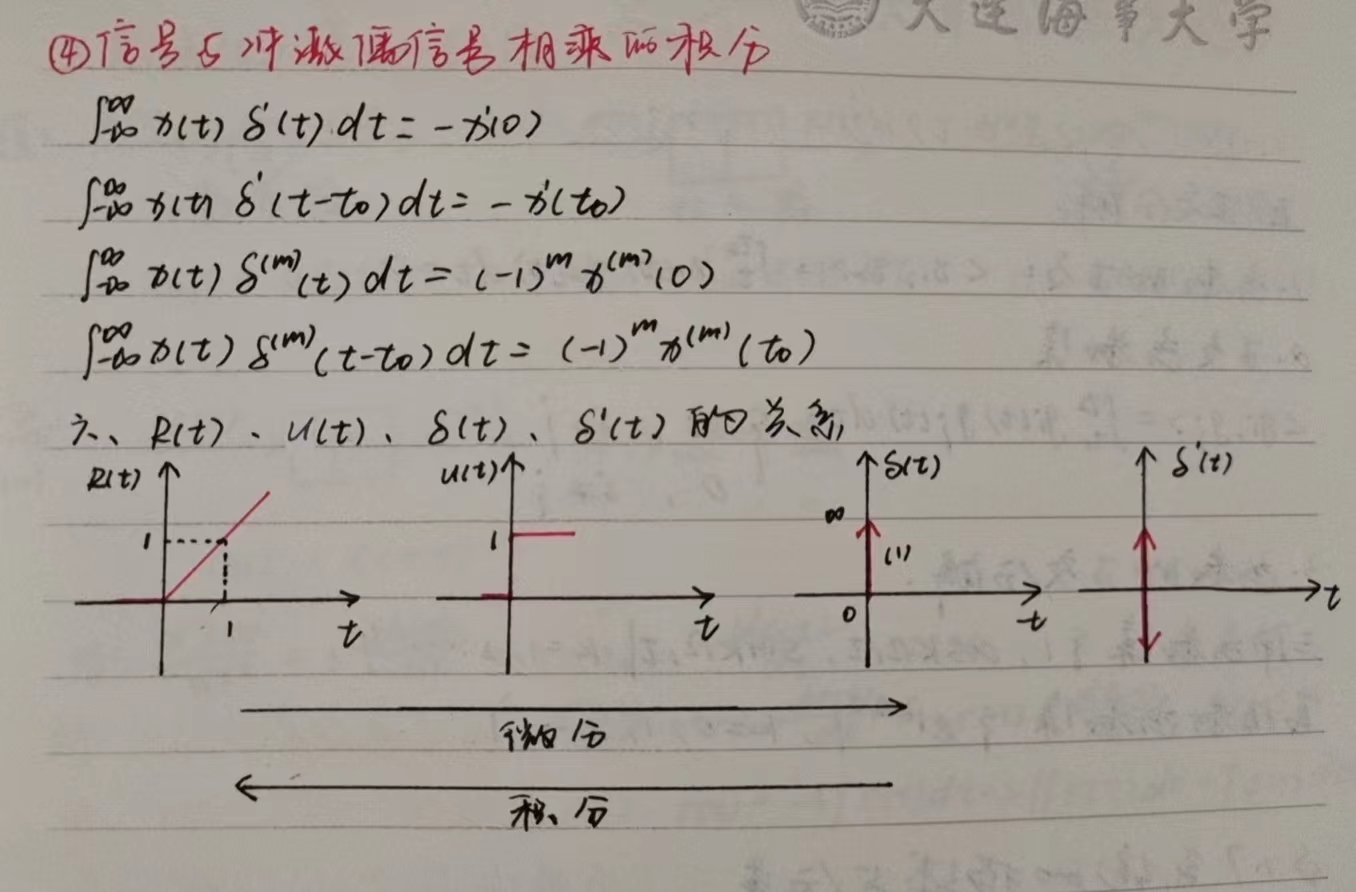 大连海事大学
④信号与冲激偶信号相乘的积分
∫_{-∞}^{∞} x(t) δ'(t) dt = -x'(0)
∫_{-∞}^{∞} x(t) δ'(t-t₀) dt = -x'(t₀)
∫_{-∞}^{∞} x(t) δ^{(m)}(t) dt = (-1)^m x^{(m)}(0)
∫_{-∞}^{∞} x(t) δ^{(m)}(t-t₀) dt = (-1)^m x^{(m)}(t₀)
六、R(t)、u(t)、δ(t)、δ'(t) 的关系
R(t) 1 1 t
u(t) 1 t
δ(t) ∞ (1) 0 t
δ'(t) t
微分
积分